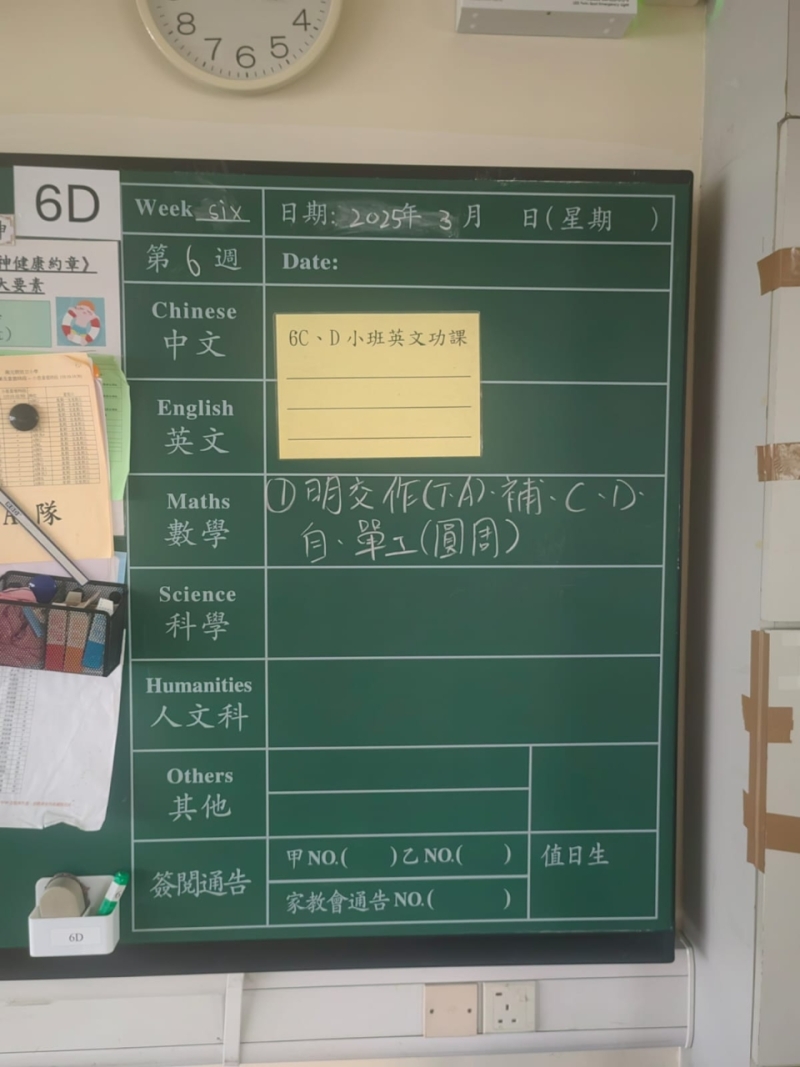 8 7 6 5 4
6D
Week six
日期: 2025年 3月 日(星期 )
第 6 週
Date:
神健康約章》
大要素
Chinese
中文
6C、D 小班英文功課
English
英文
Maths
數學
① 明交作(T.A)、補、C、D、
自、單工(圓周)
A 隊
Science
科學
Humanities
人文科
Others
其他
簽閱通告
甲NO.( )乙NO.( )
家教會通告NO.( )
值日生
6D